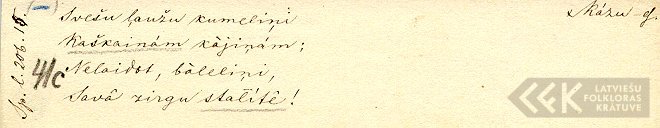 Svešu ļaužu kumeliņi
Kaškainām kājiņām;
Nelaidat, bāleliņi,
Savâ zirgu stallītê!
Sp. l. 206. 15.
41c
LATVIEŠU
FOLKLORAS
KRĀTUVE